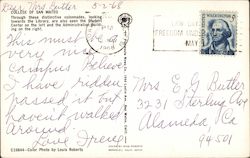 Dear Mrs Butler 5-2-68
COLLEGE OF SAN MATEO
Through these distinctive colonnades, looking
towards the Library, are also seen the Student
Center on the left and the Administration Build-
ing on the right.
This must be a
very nice
campus I believe
I have ridden
passed it but
haven't walked
around.
Love Irene
C16644-Color Photo by Louis Roberts
MAY
Mrs E. G. Butler
3231 Sterling Ave
Alameda Ca
94501